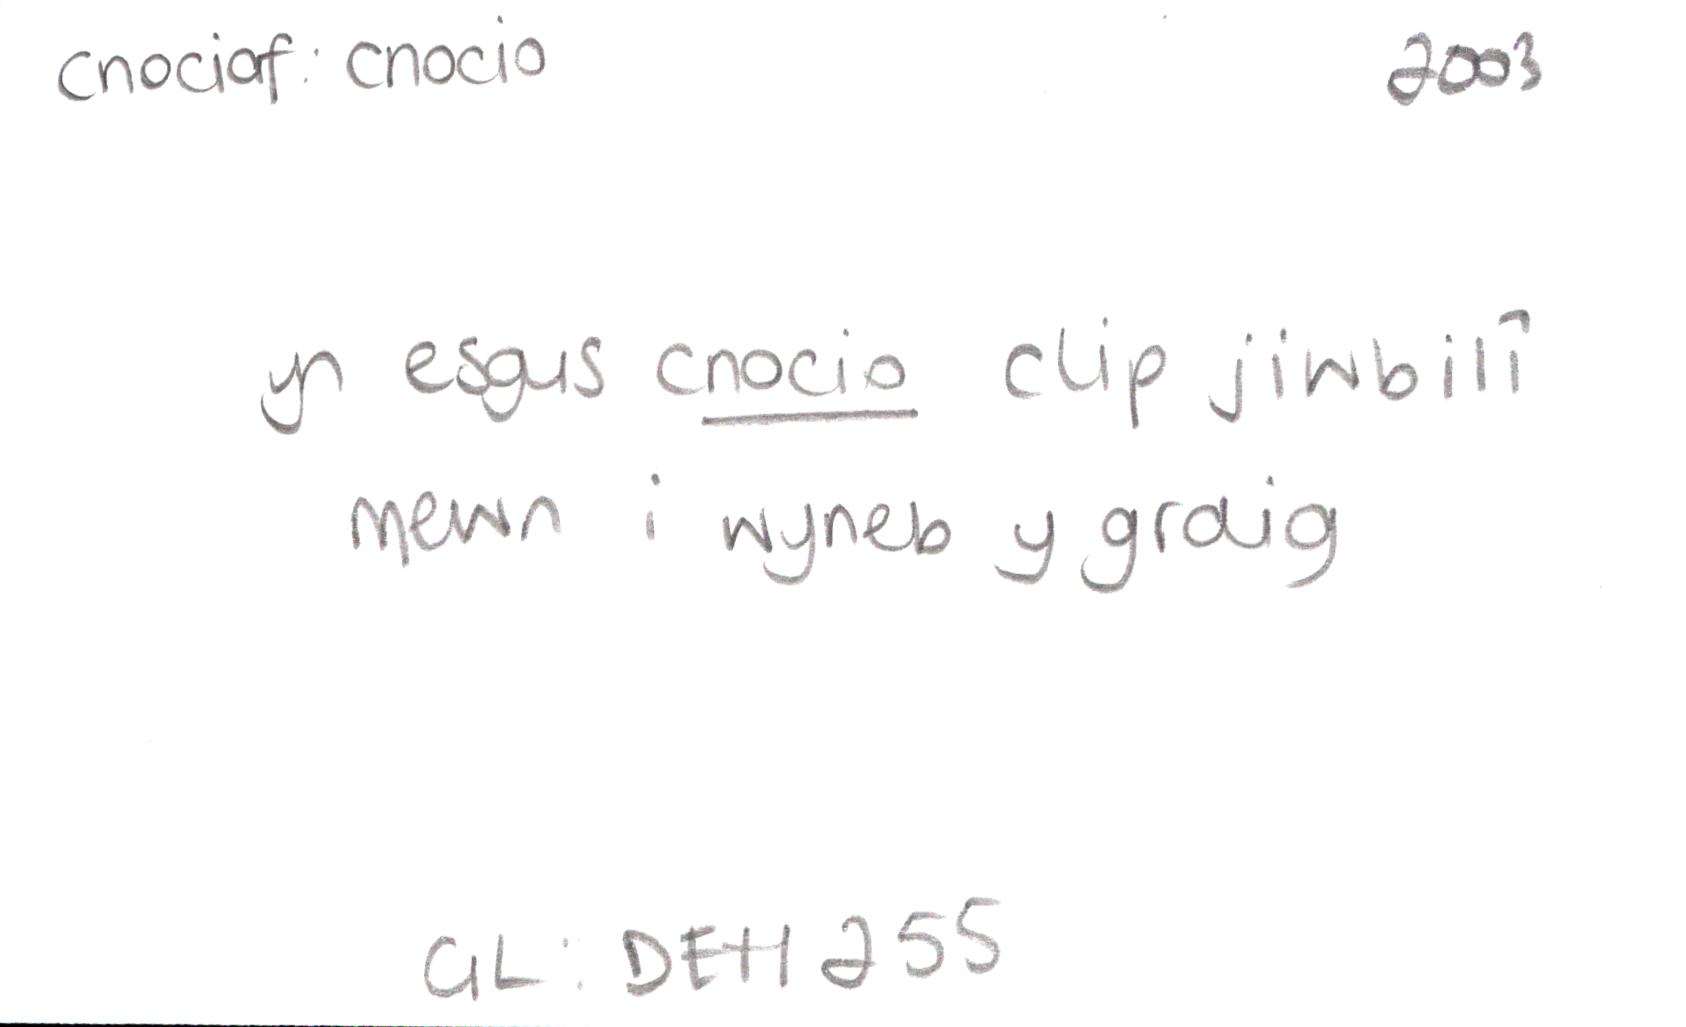 cnociaf: cnocio 2003
yn esgus cnocio clip jiwbilî
mewn i wyneb y graig
GL: DEH 255